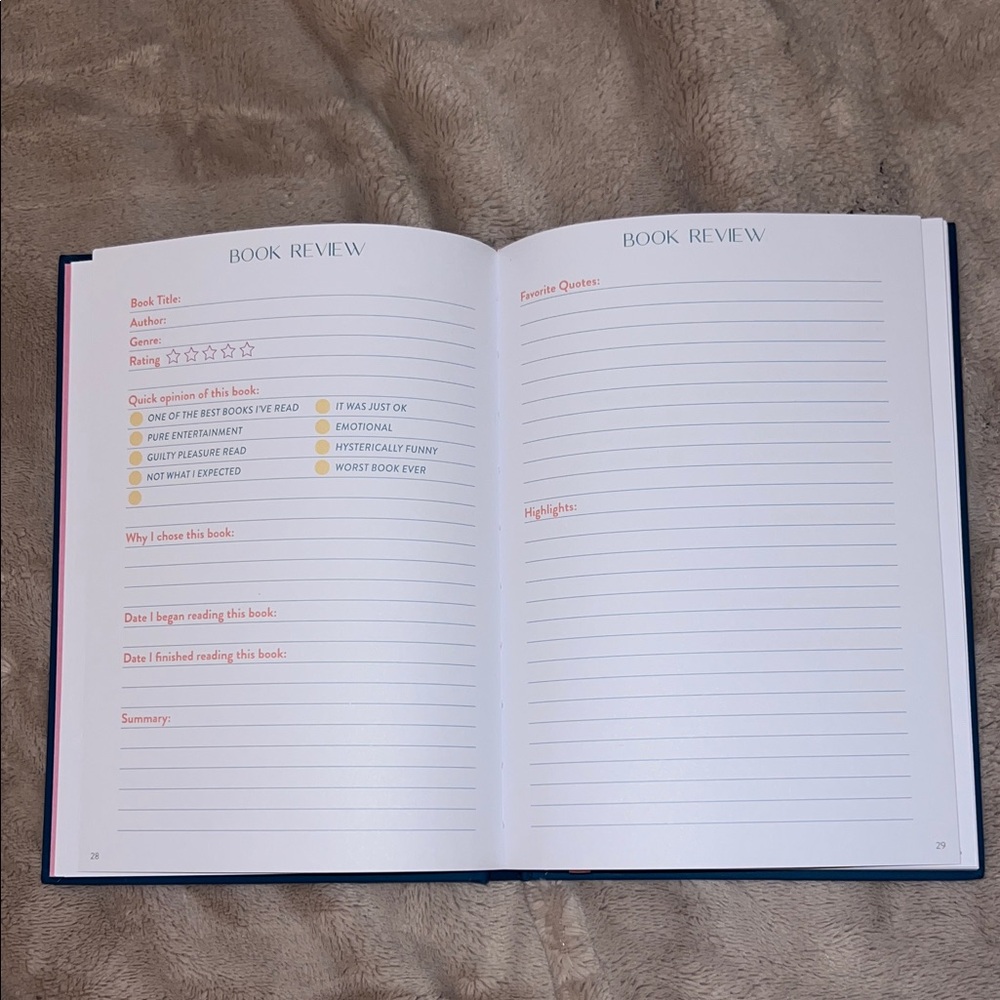 BOOK REVIEW
Book Title:
Author:
Genre:
Rating
Quick opinion of this book:
ONE OF THE BEST BOOKS I'VE READ
IT WAS JUST OK
PURE ENTERTAINMENT
EMOTIONAL
GUILTY PLEASURE READ
HYSTERICALLY FUNNY
NOT WHAT I EXPECTED
WORST BOOK EVER
Why I chose this book:
Date I began reading this book:
Date I finished reading this book:
Summary:
28
BOOK REVIEW
Favorite Quotes:
Highlights:
29